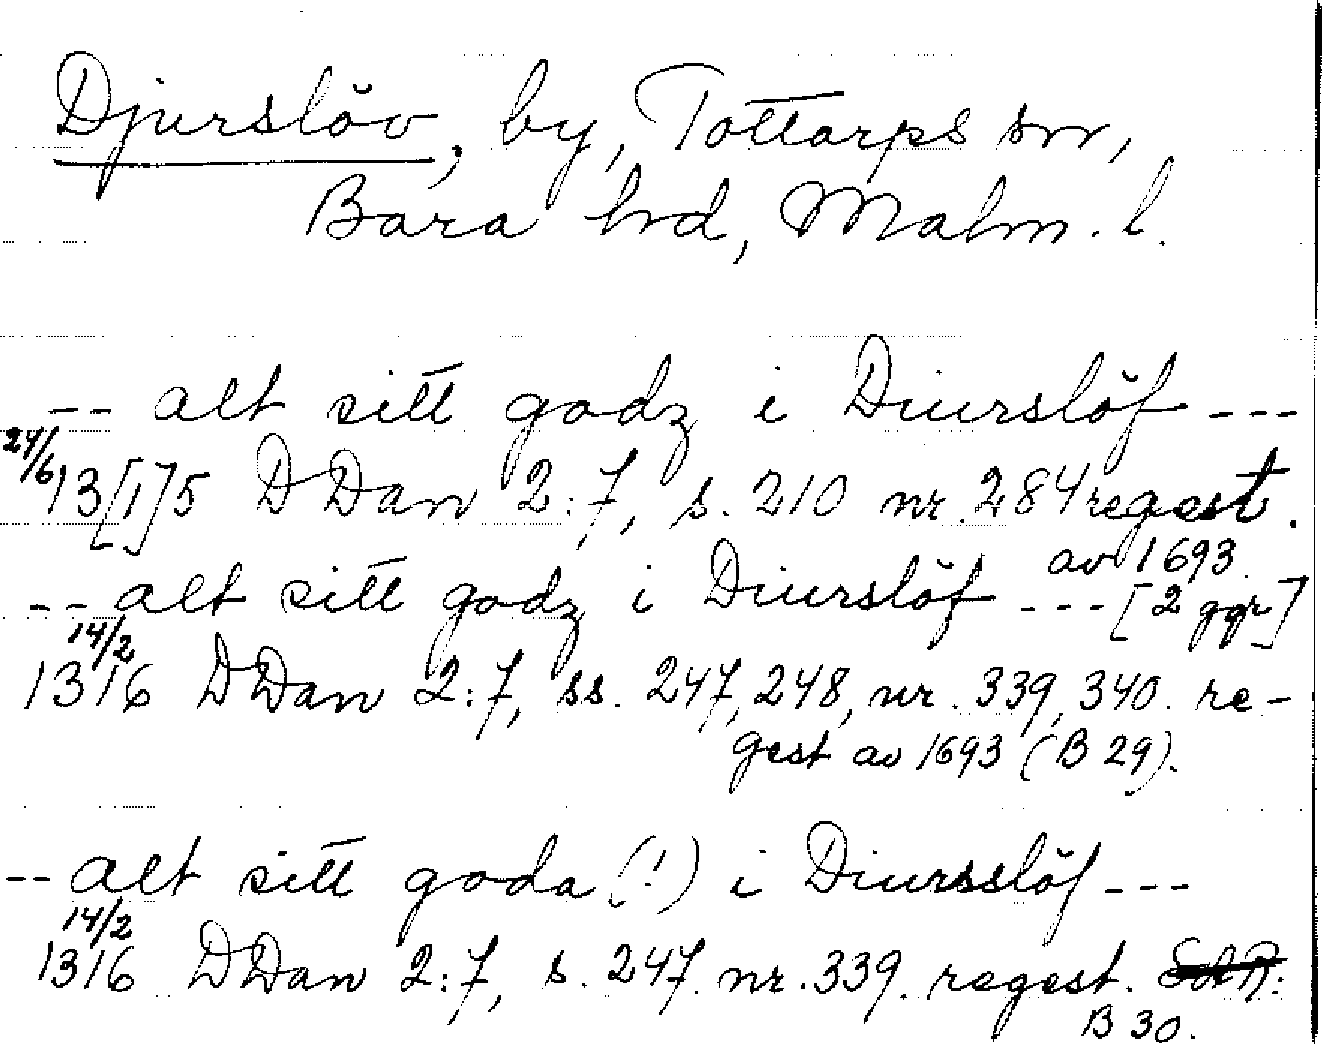 Djurslöv, by, Tottarps sn,
Bara hd, Malm. l.
-- alt sitt godz i Diurslöf ---
24/6
13[1]5 DDan 2:7, s. 210 nr. 284 regest.
av 1693.
-- alt sitt godz i Diurslöf --- [2 ggr]
14/2
1316 DDan 2:7, ss. 247, 248, nr. 339, 340. re-
gest av 1693 (B 29).
-- alt sitt goda (!) i Diursslöf ---
14/2
1316 DDan 2:7, s. 247 nr. 339. regest.
B 30.